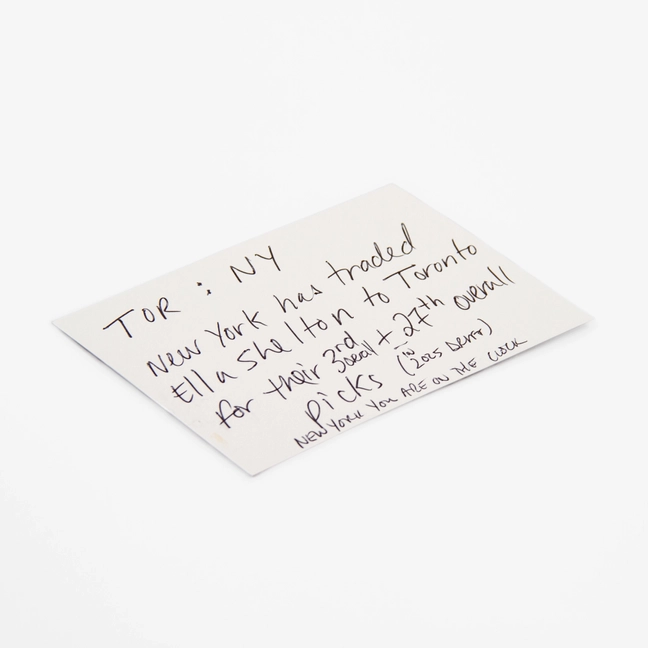 TOR : NY
New York has traded
Ella Shelton to Toronto
for their 3rd overall + 27th overall
picks (IN 2025 DRAFT)
NEW YORK YOU ARE ON THE CLOCK